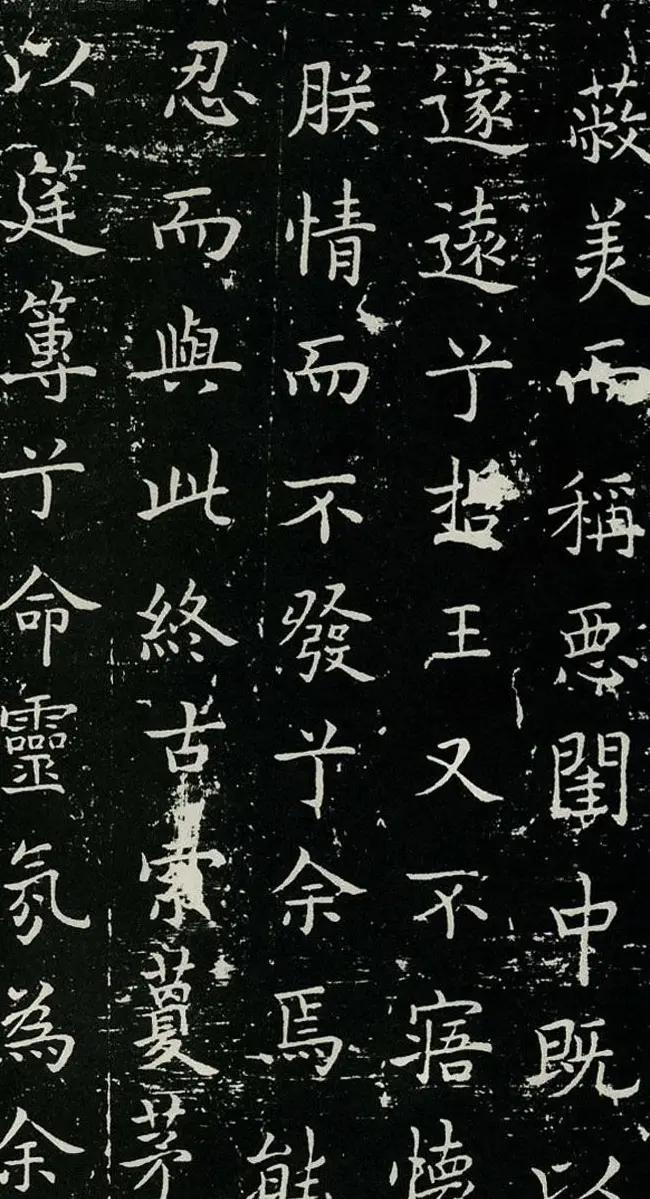 蔽美而稱惡閨中既以
邃遠兮哲王又不寤懷
朕情而不發兮余焉能
忍而與此終古索藑茅
以莛篿兮命靈氛為余